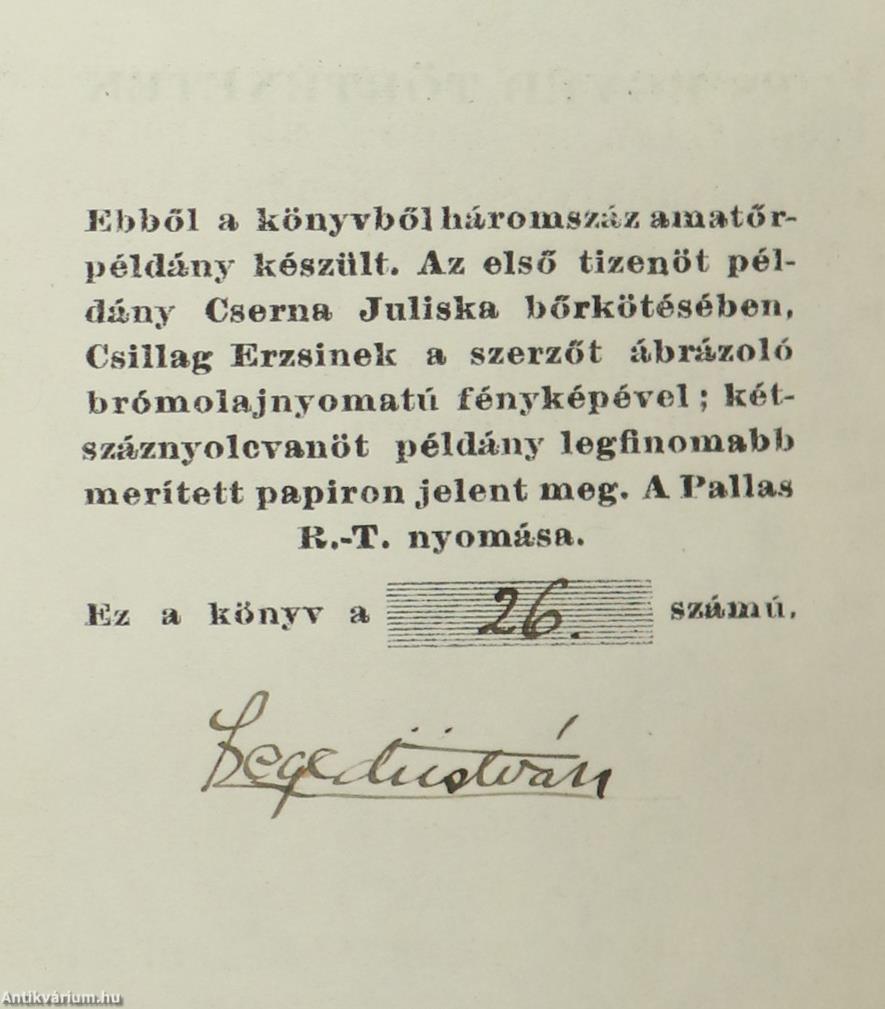 Ebből a könyvből háromszáz amatőr-
példány készült. Az első tizenöt pél-
dány Cserna Juliska bőrkötésében,
Csillag Erzsinek a szerzőt ábrázoló
brómolajnyomatú fényképével; két-
száznyolcvanöt példány legfinomabb
merített papiron jelent meg. A Pallas
R.-T. nyomása.
Ez a könyv a 26. számú.
Antikvárium.hu